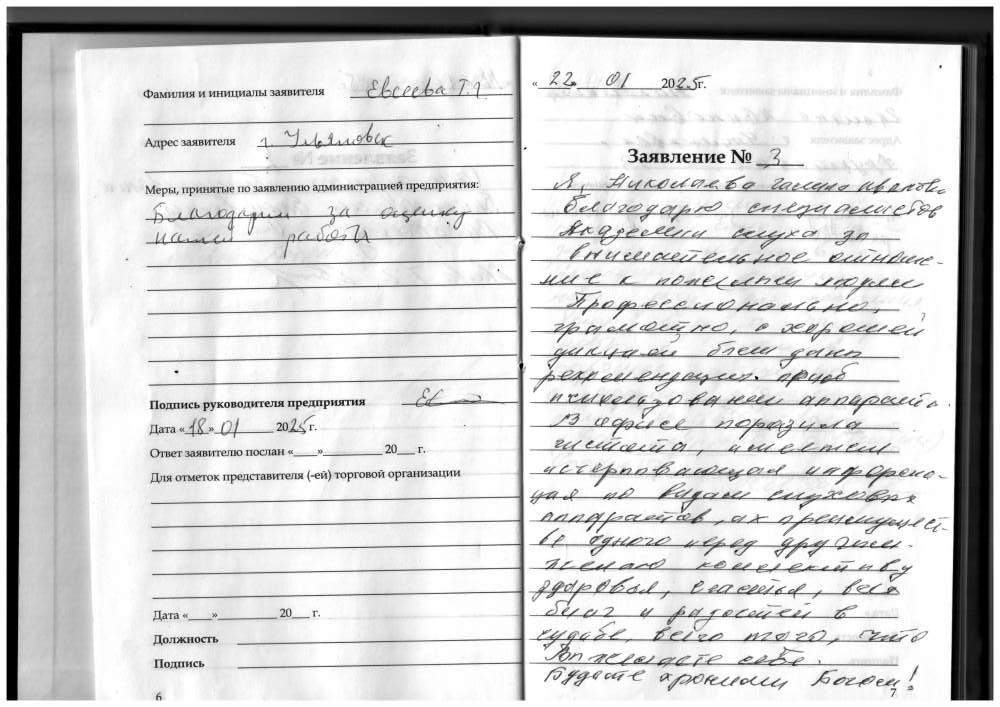 Фамилия и инициалы заявителя Евсеева Т.Г.
Адрес заявителя г. Ульяновск
Меры, принятые по заявлению администрацией предприятия:
Благодарим за оценку
нашей работы
Подпись руководителя предприятия
Дата «18» 01 2025 г.
Ответ заявителю послан «___»__________ 20___ г.
Для отметок представителя (-ей) торговой организации
Дата «___»__________ 20___ г.
Должность
Подпись
6
«22» 01 2025г.
Заявление № 3
Я, Николаева Галина Ивановна
благодарю специалистов
Академии слуха за
внимательное отноше-
ние к пожилым людям
Профессионально,
грамотно, с хорошей
дикцией были даны
рекомендации
пользования аппарата.
В офисе поразила
чистота, имеется
исчерпывающая информа-
ция по видам слуховых
аппаратов, их преимущест-
ве одного перед другим.
Желаю коллективу
здоровья, счастья, всех
благ и радостей в
судьбе, всего того, что
Вы желаете себе.
Будьте хранимы Богом!
7